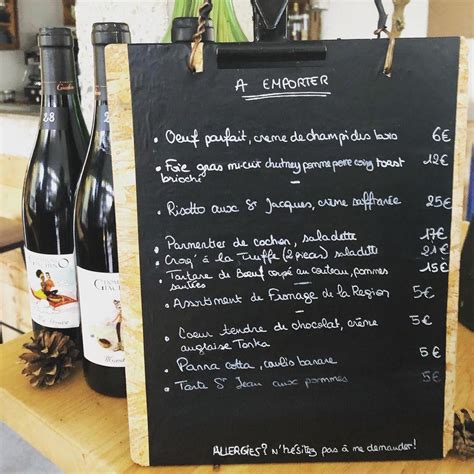 A EMPORTER
• Oeuf parfait, crème de champi des bois 6€
• Foie gras mi-cuit chutney pomme poire coing toast 12€
brioché
• Risotto aux St Jacques, crème saffranée 25€
• Parmentier de cochon, saladette 17€
• Croq' à la Truffe (2 pièces) saladette 21€
• Tartare de Boeuf coupé au couteau, pommes 15€
sautées
• Assortiment de Fromage de la Région 5€
• Coeur tendre de chocolat, crème 5€
anglaise Tonka
• Panna cotta, coulis banane 5€
• Tarte St Jean aux pommes 5€
ALLERGIES? N'hésitez pas à me demander!
28